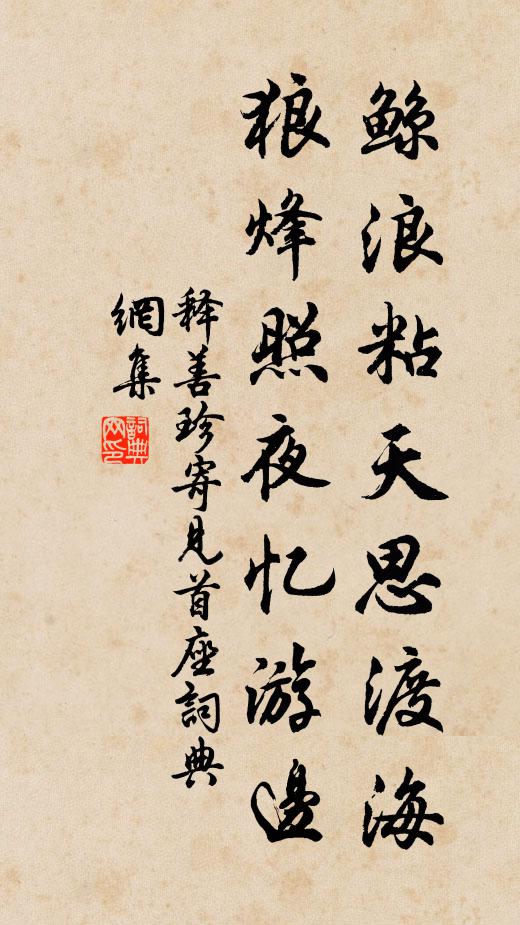 鲸浪粘天思渡海
狼烽照夜忆游邊
释善珍寄見首座詞典
網集
詞典
网印